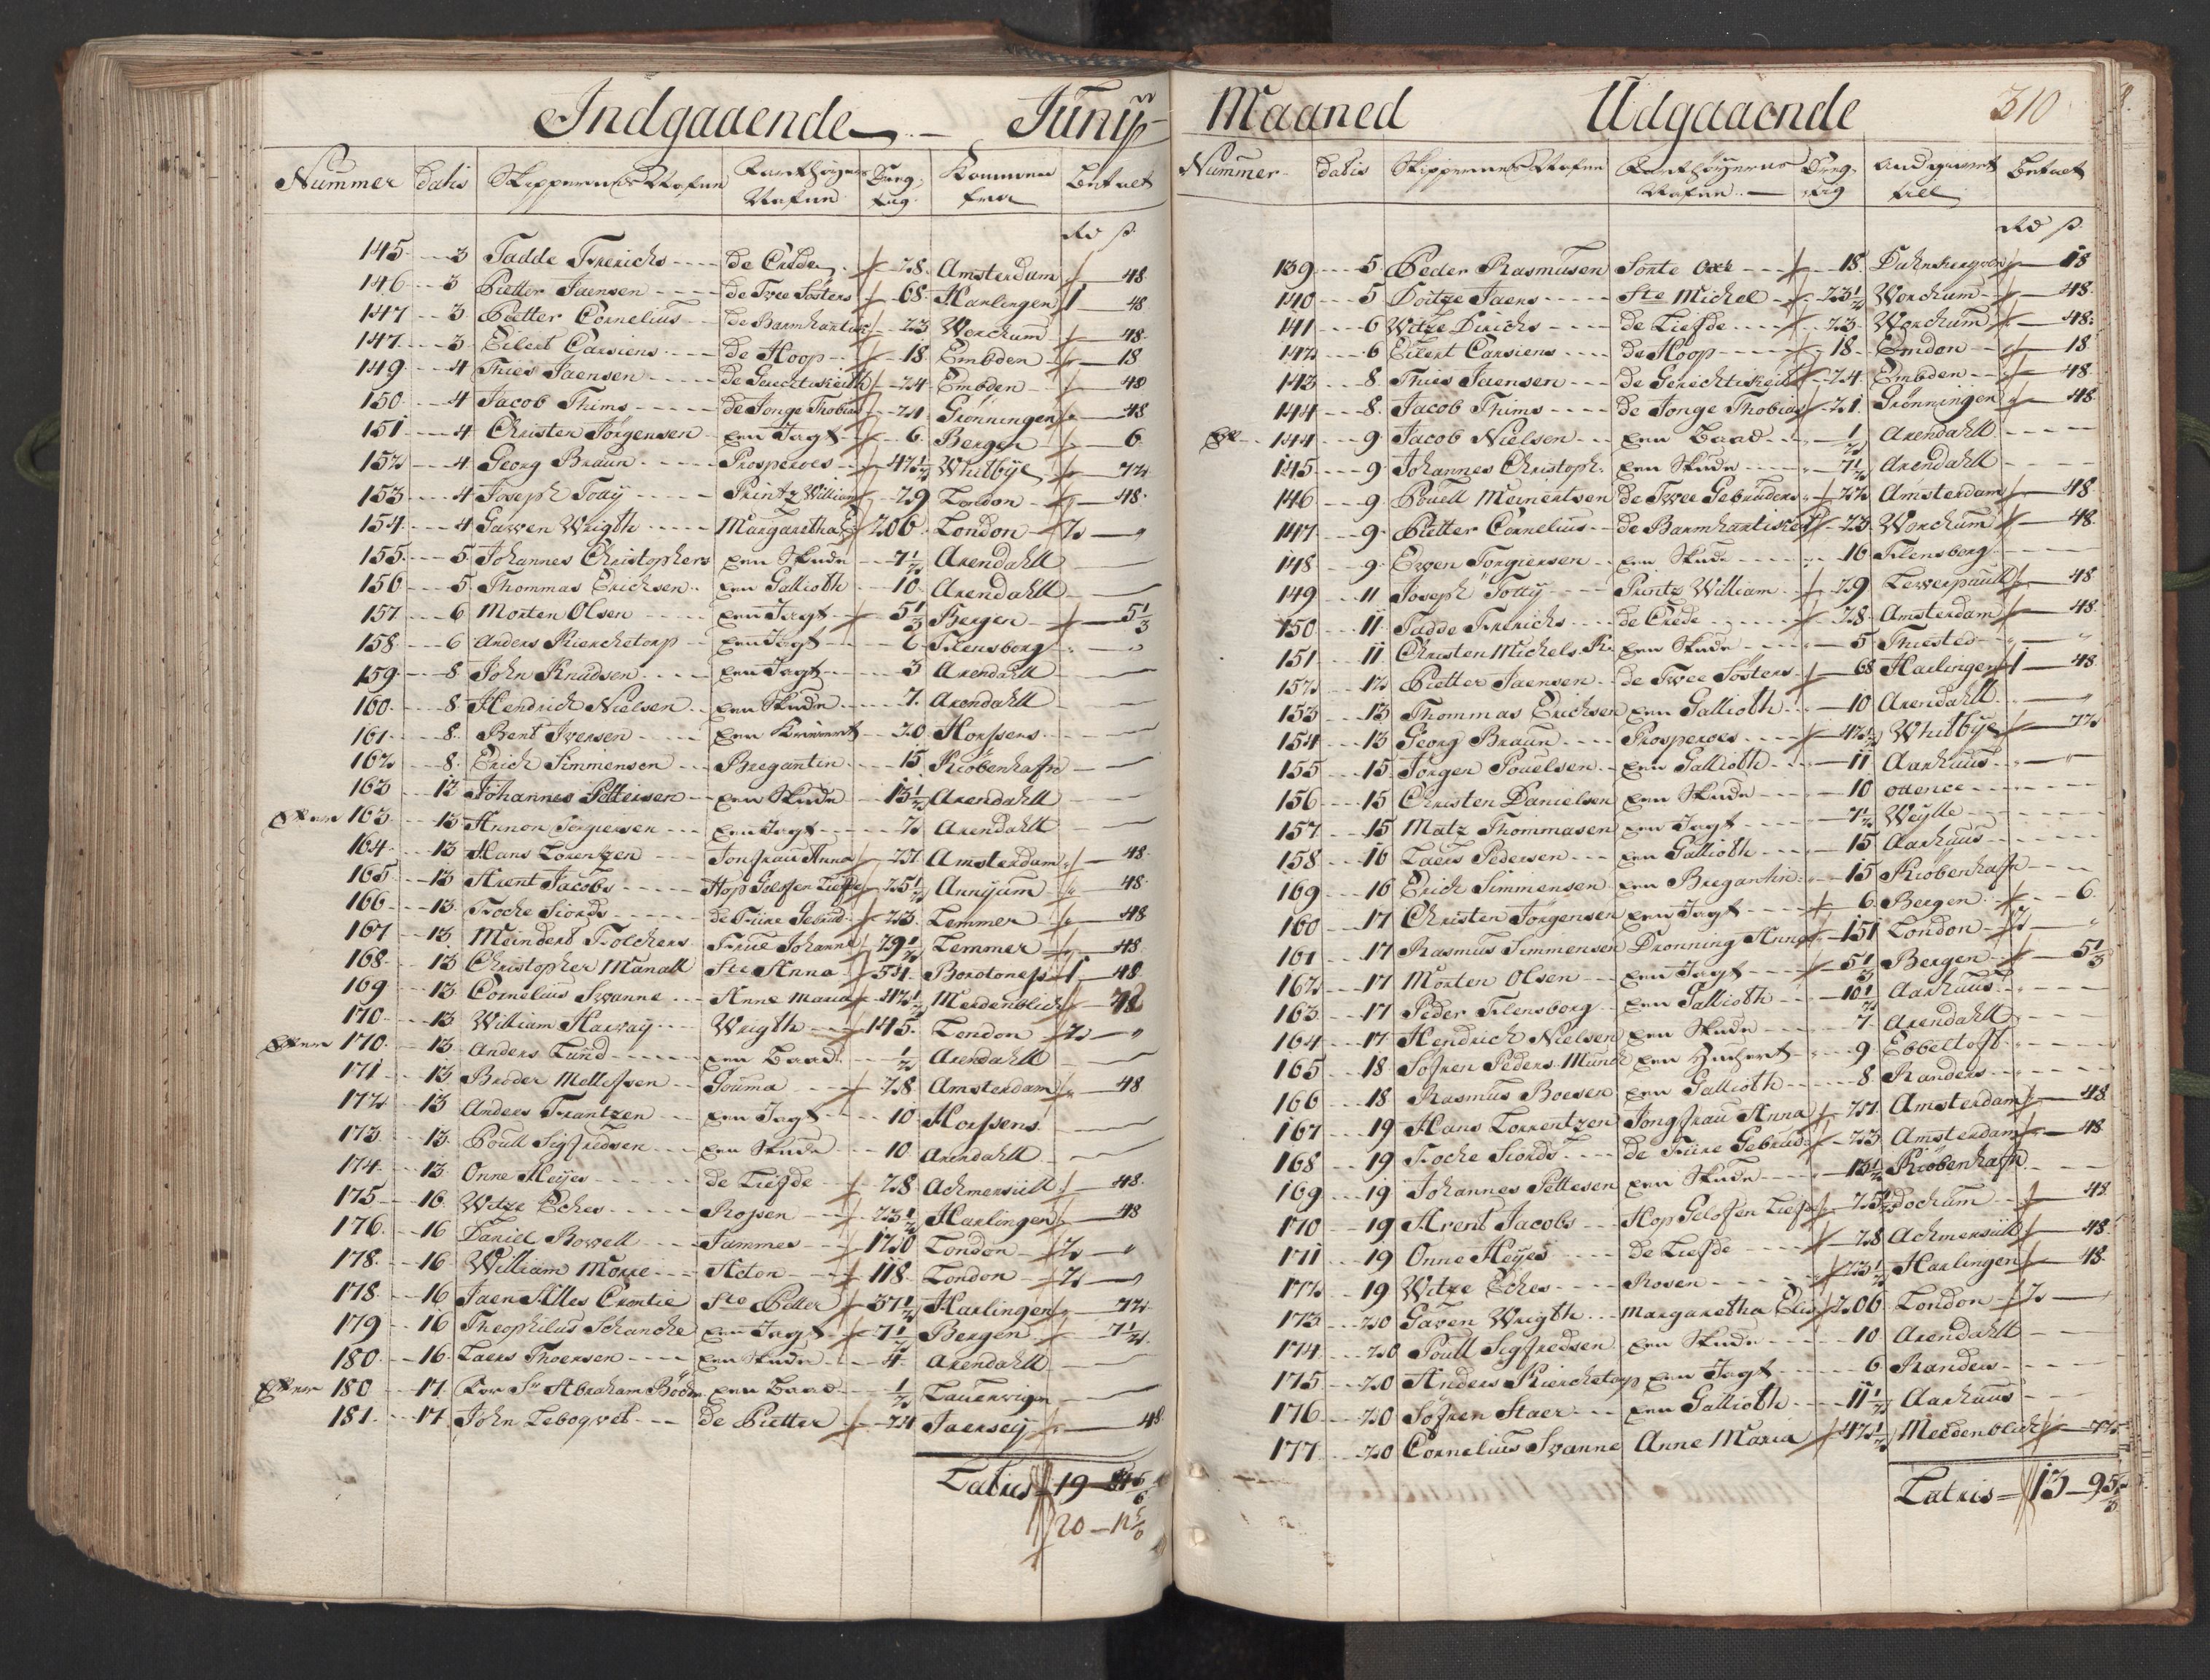 Indgaaende — Junij
Nummer datis Skippernes Nafne Farthøyers Nafne Dreg- tug Kommen fra betalt
Rd s
145 3 Tadde Frerichs de Crede 28 Amsterdam 48
146 3 Pietter Jaensen de Twee Søsters 68 Harlingen 1 48
147 3 Pietter Cornelius de Barmhartiz 23 Worckum 48
147 3 Eilert Carsiens de Hoop 18 Embden 18
149 4 Thies Jaensen de Gerechtikeith 24 Embden 48
150 4 Jacob Thims de Jonge Thobias 21 Grönningen 48
151 4 Christen Jörgensen een Jagt 6 Bergen 6
152 4 Georg Braun Prosperoes 47½ Whitbÿe 72
153 4 Joseph Totij Printz William 29 London 48
154 4 Gawen Wrigth Margaretha E 206 London 2 "
155 5 Johannes Christophers een Skude 7½ Arendahll
156 5 Thommas Erichsen een Gallioth 10 Arendahll
157 6 Morten Olsen een Jagt 5⅓ Bergen 5⅓
158 6 Anders Kierchetorp een Jagt 6 Flensborg "
159 8 John Knudsen een Jagt 3 Arendahll
160 8 Hendrich Nielsen een Skude 7 Arendahll
161 8 Bent Iversen een Krejert 20 Horssens
162 8 Erich Simmensen Bregantin 15 Kiöbenhafn
163 12 Johannes Pettersen een Skude 13½ Arendahll
163 13 Annon Torgiersen een Jagt 2 Arendahll
164 13 Hans Lorentzen Jonfrau Anna 27 Amsterdam 48
165 13 Arent Jacobs Hop Gelofsen Liefde 25½ Annÿum 48
166 13 Focke Siords de Fiire Gebrud 23 Lemmer 48
167 13 Meindert Folchers Frue Johanna 29½ Lemmer 48
168 13 Christopher Manall Ste Anna 51 Borotoness 1 48
169 13 Cornelius Svanne Anne Maria 47½ Medenblich 72
170 13 William Harwaij Wrigth 145 London 2 "
170 13 Anders Lund een Baad ½ Arendahll
171 13 Broder Mellefsen Gouma 28 Amsterdam 48
172 13 Anders Frantzen een Jagt 10 Horssens
173 13 Poull Sigfredsen een Skude 10 Arendahll
174 13 Onne Heyes de Liefde 28 Achmersiill 48
175 16 Witze Eches Rosen 23½ Harlingen 48
176 16 Daniel Bowell Jammes 120 London 2 "
178 16 William Morre Acton 118 London 2
178 16 Jaen Alles Crontie Ste Petter 37½ Harlingen 72
179 16 Theophilus Schancke een Jagt 7½ Bergen 7½
180 16 Laers Thoersen een Skude 4 Arendahll
180 17 For Sr Abraham Böckm een Baad ½ Lauervign
181 17 John Lebogvet de Pietter 24 Jaerseij 48
Latus 19
20 — 12⅚
Maaned Udgaaende 310
Nummer datis Skippernes Nafne Farthøyernes Nafne Dreg- tug Andgiwet till betalt
Rd s
139 5 Peder Rasmusen Sorte Oxe 18 18
140 5 Doitze Jaens Ste Michel 23½ Worckum 48
141 6 Witze Dirichs de Liefde 23 Worckum 48
142 6 Eilert Carsiens de Hoop 18 Emden 18
143 8 Thies Jaensen de Gerechtikeit 24 Embden 48
144 8 Jacob Thims de Jonge Thobias 21 Grönningen 48
144 9 Jacob Nielsen een Baad ½ Arendahll
145 9 Johannes Christoph: een Skude 7½ Arendahll
146 9 Pouell Meinertsen de Twee Gebruders 22 Amsterdam 48
147 9 Pietter Cornelius de Barmhartiket 23 Worckum 48
148 9 Ewen Torgiersen een Skude 16 Flensborg
149 11 Joseph Totty Printz William 29 Lewerpaull 48
150 11 Tadde Frerichs de Crede 28 Amsterdam 48
151 11 Christen Michels. Ki een Skude 5 Thiested "
152 12 Pietter Jaensen de Twee Søsters 68 Harlingen 1 48
153 13 Thommas Erichsen een Gallioth 10 Arendahll
154 13 Georg Braun Prosperoes 47½ Whitbÿe 72
155 15 Jörgen Pouelsen een Gallioth 11 Aarhuus
156 15 Christen Danielsen een Skude 10 ottence
157 15 Matz Thommasen een Jagt 7½ Weÿlle
158 16 Laers Pedersen een Gallioth 15 Aarhuus
169 16 Erich Simmensen een Bregantin 15 Kiöbenhafn
160 17 Christen Jörgensen een Jagt 6 Bergen 6
161 17 Rasmus Simmensen Dronning Anna 151 London 2 "
162 17 Morten Olsen een Jagt 5⅓ Bergen 5⅓
163 17 Peder Flensborg een Gallioth 10½ Aarhuus
164 17 Hendrich Nielsen een Skude 7 Arendahll
165 18 Sofren Peders. Munch een Huchert 9 Ebbeltoft
166 18 Rasmus Boesen een Gallioth 8 Randers
167 19 Hans Lorentzen Jongfrau Anna 27 Amsterdam 48
168 19 Focke Siords de Fiire Gebrud 23 Amsterdam 48
169 19 Johannes Pettesen een Skude 13½ Kiöbenhafn
170 19 Arent Jacobs Hop Gelofsen Liefde 25½ Dockum 48
171 19 Onne Heyes de Liefde 28 Achmersiill 48
172 19 Witze Eches Rosen 23½ Harlingen 48
173 20 Gaven Wrigth Margaretha Elis 206 London 2
174 20 Poull Sigfredsen een Skude 10 Arendahll
175 20 Anders Kierchetorp een Jagt 6 Randers
176 20 Sofren Staer een Gallioth 11½ Aarhuus
177 20 Cornelius Svanne Anne Maria 47½ Medenblich 72
Latus 13 — 95⅓